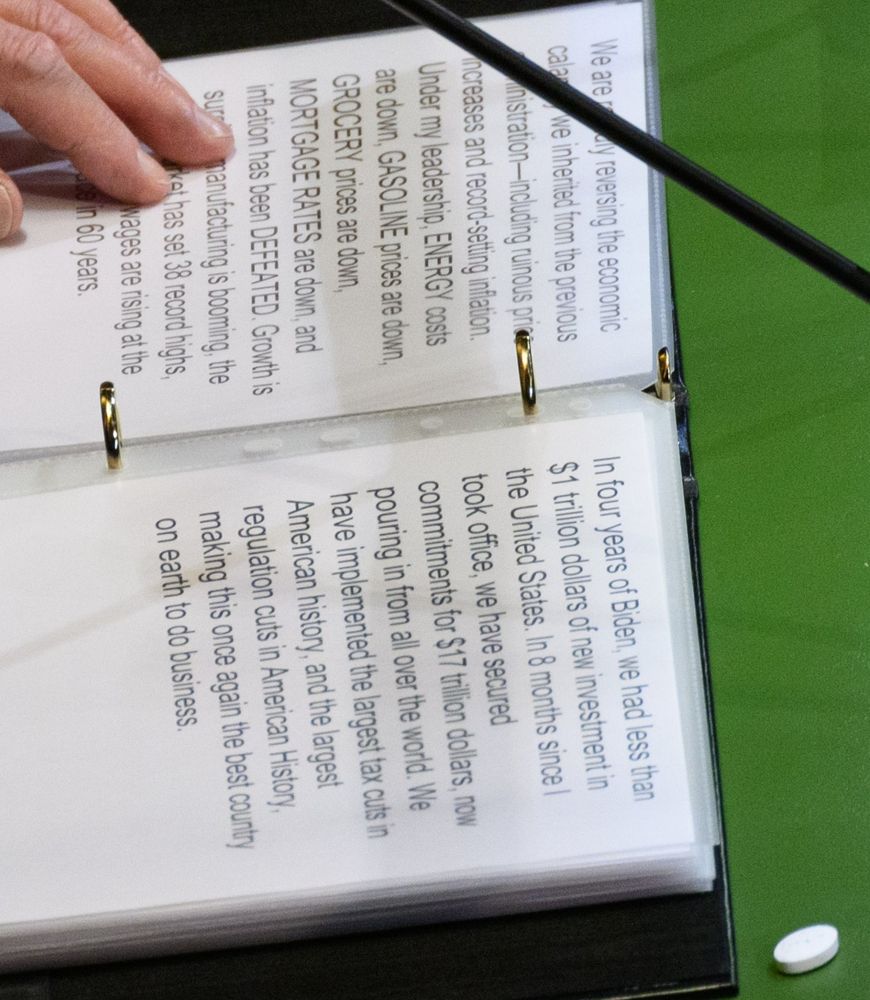 We are reversing the economic
we inherited from the previous
including ruinous
increases and record-setting inflation.
Under my leadership, ENERGY costs
are down, GASOLINE prices are down,
GROCERY prices are down,
MORTGAGE RATES are down, and
inflation has been DEFEATED. Growth is
manufacturing is booming, the
has set 38 record highs,
wages are rising at the
in 60 years.
In four years of Biden, we had less than
$1 trillion dollars of new investment in
the United States. In 8 months since I
took office, we have secured
commitments for $17 trillion dollars, now
pouring in from all over the world. We
have implemented the largest tax cuts in
American history, and the largest
regulation cuts in American History,
making this once again the best country
on earth to do business.